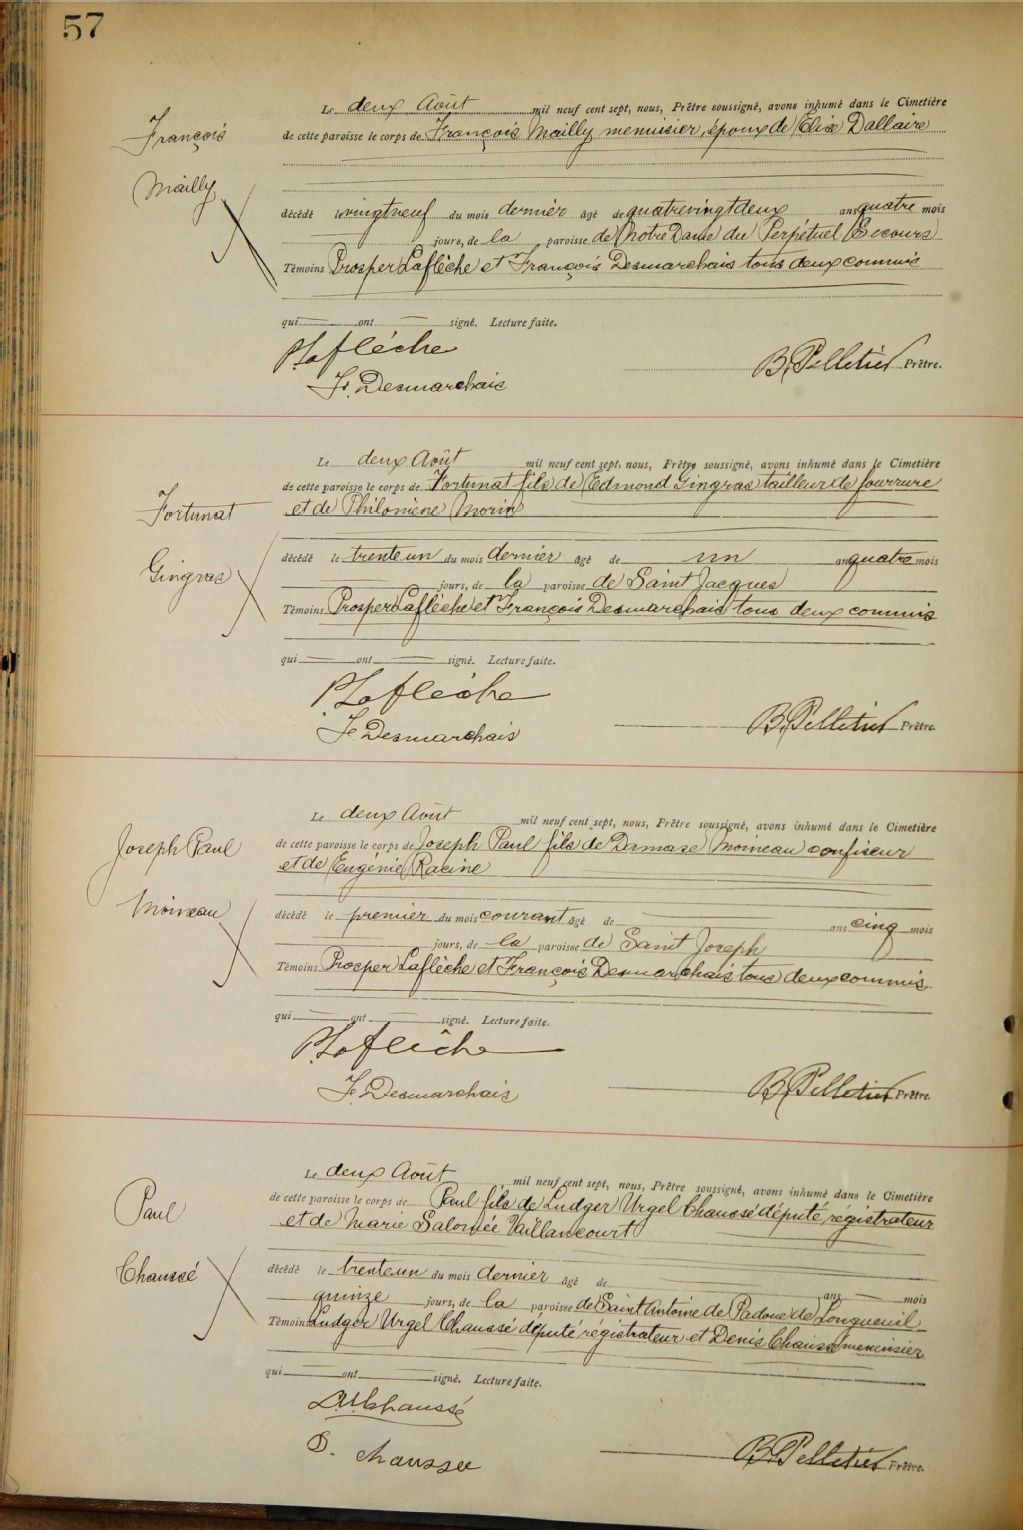 57
Le deux Août mil neuf cent sept, nous, Prêtre soussigné, avons inhumé dans le Cimetière
François
de cette paroisse le corps de François Mailly menuisier, époux de Elise Dallaire
Mailly
décédé le vingtneuf du mois dernier âgé de quatrevingtdeux ans quatre mois
jours, de la paroisse de Notre Dame du Perpétuel Secours
Témoins Prosper Laflèche et François Desmarchais tous deux commis
qui ont signé. Lecture faite.
P. Laflèche
B. Pelletier Prêtre.
F. Desmarchais
Le deux Août mil neuf cent sept, nous, Prêtre soussigné, avons inhumé dans le Cimetière
de cette paroisse le corps de Fortunat fils de Edmond Gingras tailleur de fourrure
Fortunat
et de Philomène Morin
décédé le trenteun du mois dernier âgé de un an quatre mois
Gingras
jours, de la paroisse de Saint Jacques
Témoins Prosper Laflèche et François Desmarchais tous deux commis
qui ont signé. Lecture faite.
P. Laflèche
B. Pelletier Prêtre
F. Desmarchais
Le deux Août mil neuf cent sept, nous, Prêtre soussigné, avons inhumé dans le Cimetière
Joseph Paul
de cette paroisse le corps de Joseph Paul fils de Damase Moineau confiseur
et de Eugénie Racine
Moineau
décédé le premier du mois courant âgé de ans cinq mois
jours, de la paroisse de Saint Joseph
Témoins Prosper Laflèche et François Desmarchais tous deux commis
qui ont signé. Lecture faite.
P. Laflèche
B. Pelletier Prêtre.
F. Desmarchais
Le deux Août mil neuf cent sept, nous, Prêtre soussigné, avons inhumé dans le Cimetière
Paul
de cette paroisse le corps de Paul fils de Ludger Urgel Chaussé député régistrateur
et de Marie Salomée Vaillancourt
Chaussé
décédé le trenteun du mois dernier âgé de ans mois
quinze jours, de la paroisse de Saint Antoine de Padoue de Longueuil
Témoins Ludger Urgel Chaussé député régistrateur et Denis Chaussé menuisier
qui ont signé. Lecture faite.
L. U. Chaussé
D. Chaussée
B. Pelletier Prêtre.